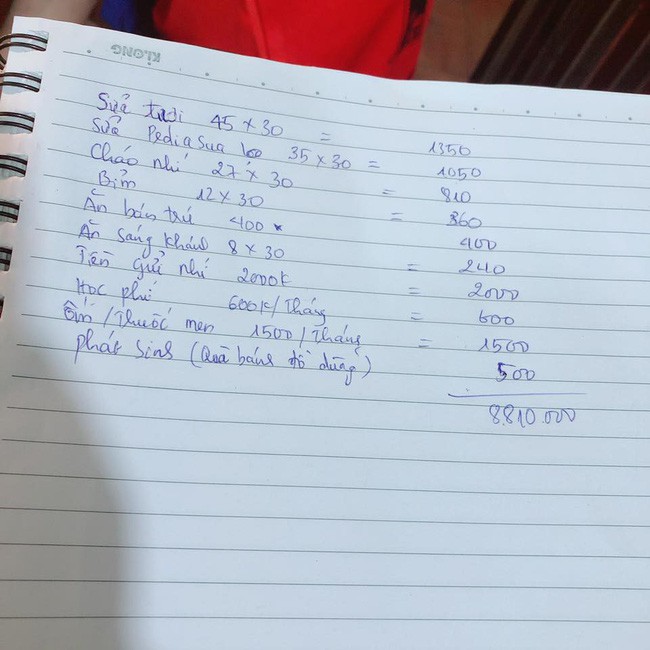 KLONG
Sữa tươi 45 x 30 = 1350
Sữa Pediasua lon 35 x 30 = 1050
Cháo nhí 27 x 30 = 810
Bỉm 12 x 30 = 360
Ăn bán trú 400 400
Ăn sáng kháu 8 x 30 = 240
Tiền gửi nhí 2000k = 2000
Học phí 600k/tháng = 600
Ốm/Thuốc men 1500/Tháng = 1500
phát sinh (Quà bánh đồ dùng) 500
8.810.000